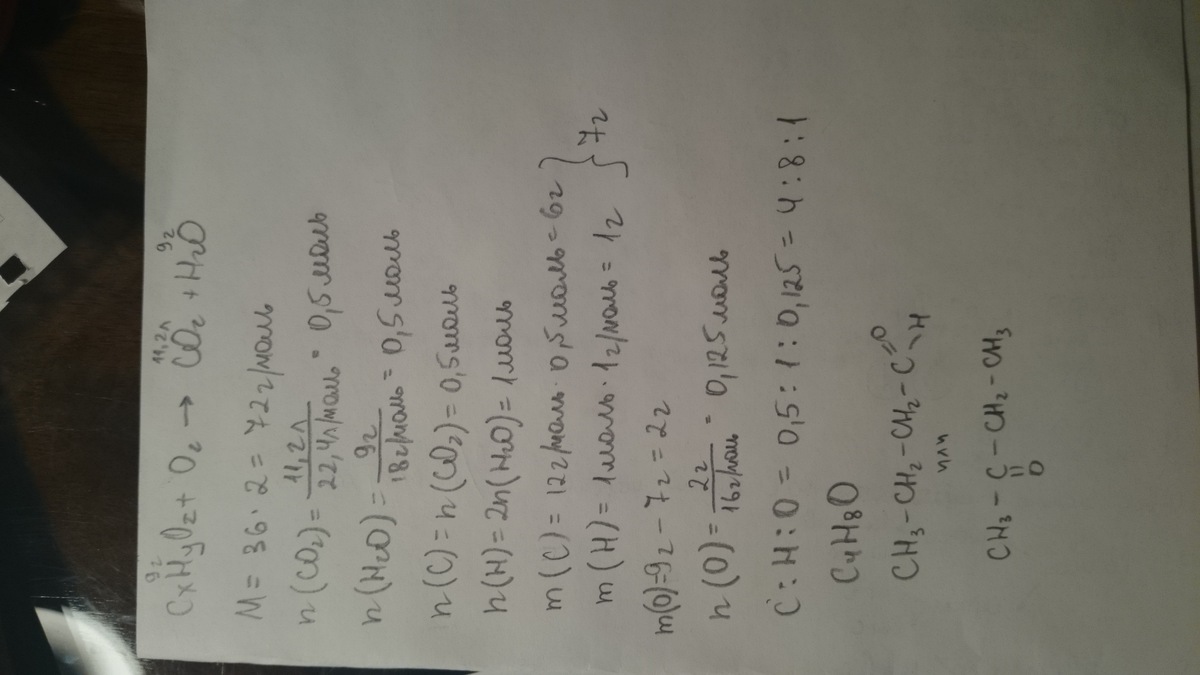 9г 11,2л 9г
CxHyOz + O2 → CO2 + H2O
M = 36 · 2 = 72 г/моль
n(CO2) = 11,2л / 22,4л/моль = 0,5 моль
n(H2O) = 9г / 18г/моль = 0,5 моль
n(C) = n(CO2) = 0,5 моль
n(H) = 2n(H2O) = 1 моль
m(C) = 12 г/моль · 0,5 моль = 6г
m(H) = 1 моль · 1 г/моль = 1г } 7г
m(O) = 9г – 7г = 2г
n(O) = 2г / 16г/моль = 0,125 моль
C : H : O = 0,5 : 1 : 0,125 = 4 : 8 : 1
C4H8O
CH3 – CH2 – CH2 – C =O – H
или
CH3 – C – CH2 – CH3
=
O